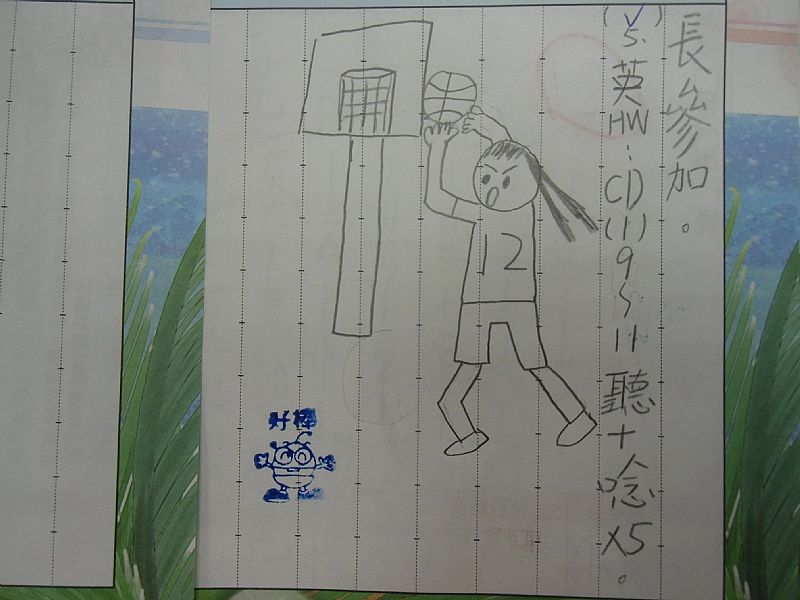 長參加。
(✓)5.英HW:CD(1)9~11聽+唸x5。
12
好棒